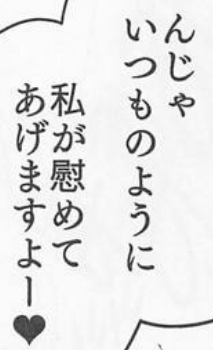 んじゃ
いつものように
私が慰めて
あげますよー♥